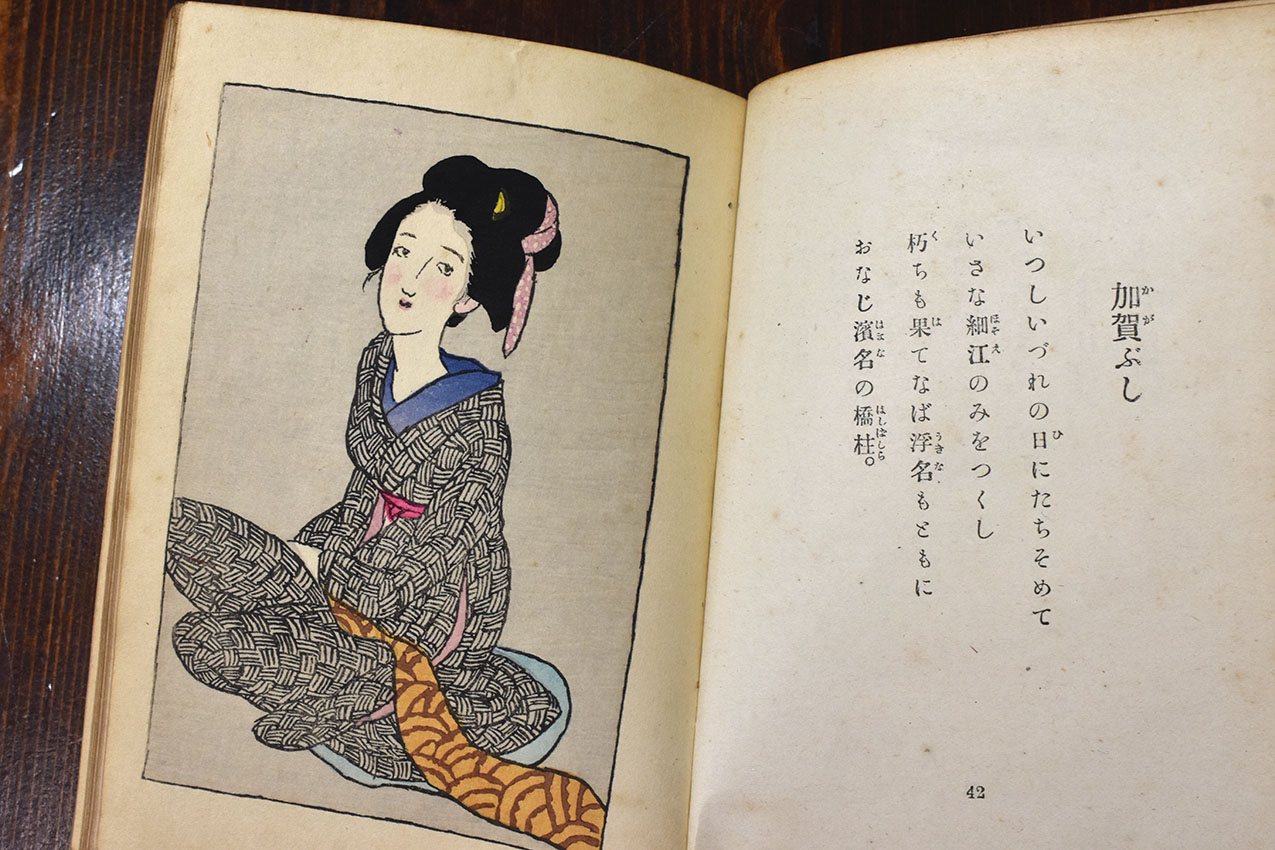 加賀ぶし
いつしいづれの日にたちそめて
いさな細江のみをつくし
朽ちも果てなば浮名もともに
おなじ濱名の橋柱。
42